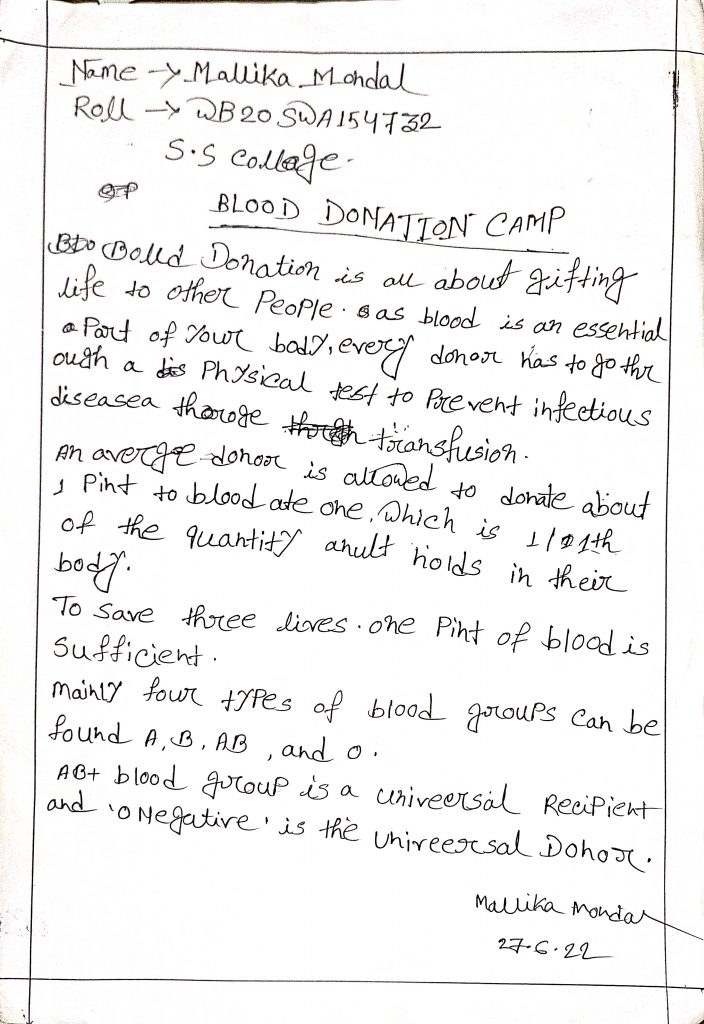 Name → Mallika Mondal
Roll → WB20SWA154732
S.S College.
BLOOD DONATION CAMP
Bolld Donation is all about gifting
life to other People. as blood is an essential
a Part of your body, every donor has to go thr
ough a Physical test to Prevent infectious
diseasea thoroge transfusion.
An averge donor is allowed to donate about
1 Pint to blood ate one, which is 1/01th
of the quantity anult holds in their
body.
To save three lives. one Pint of blood is
Sufficient.
Mainly four types of blood groups can be
found A, B, AB, and O.
AB+ blood group is a univeersal Recipient
and 'O Negative' is the Univeersal Donor.
Mallika Mondal
27.6.22